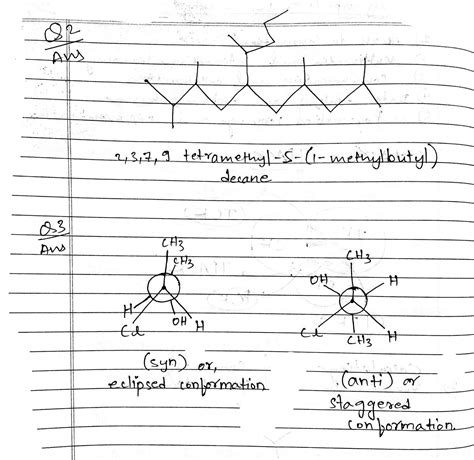 Q2
Ans
2,3,7,9 tetramethyl-5-(1-methylbutyl)
decane
Q3
Ans
CH3
CH3
H
Cl
OH
H
(syn) or,
eclipsed conformation
CH3
OH
H
Cl
CH3
H
(anti) or
staggered
conformation.